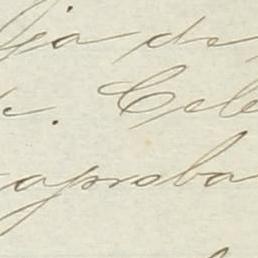 ja de
e. Cele
aproba